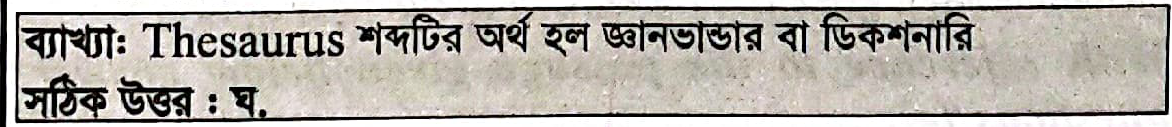 ব্যাখ্যাঃ Thesaurus শব্দটির অর্থ হল জ্ঞানভান্ডার বা ডিকশনারি
সঠিক উত্তর : ঘ.